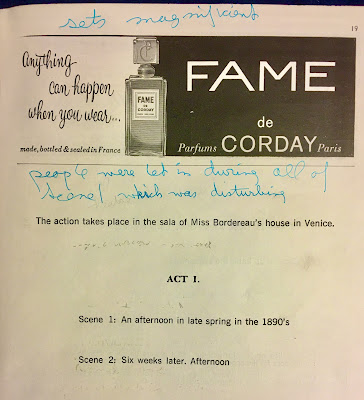 sets magnificent
19
Anything
can happen
when you wear...
FAME
DE
CORDAY
made, bottled & sealed in France
FAME
de
Parfums CORDAY Paris
people were let in during all of
scene 1 which was disturbing
The action takes place in the sala of Miss Bordereau's house in Venice.
ACT I.
Scene 1: An afternoon in late spring in the 1890's
Scene 2: Six weeks later. Afternoon